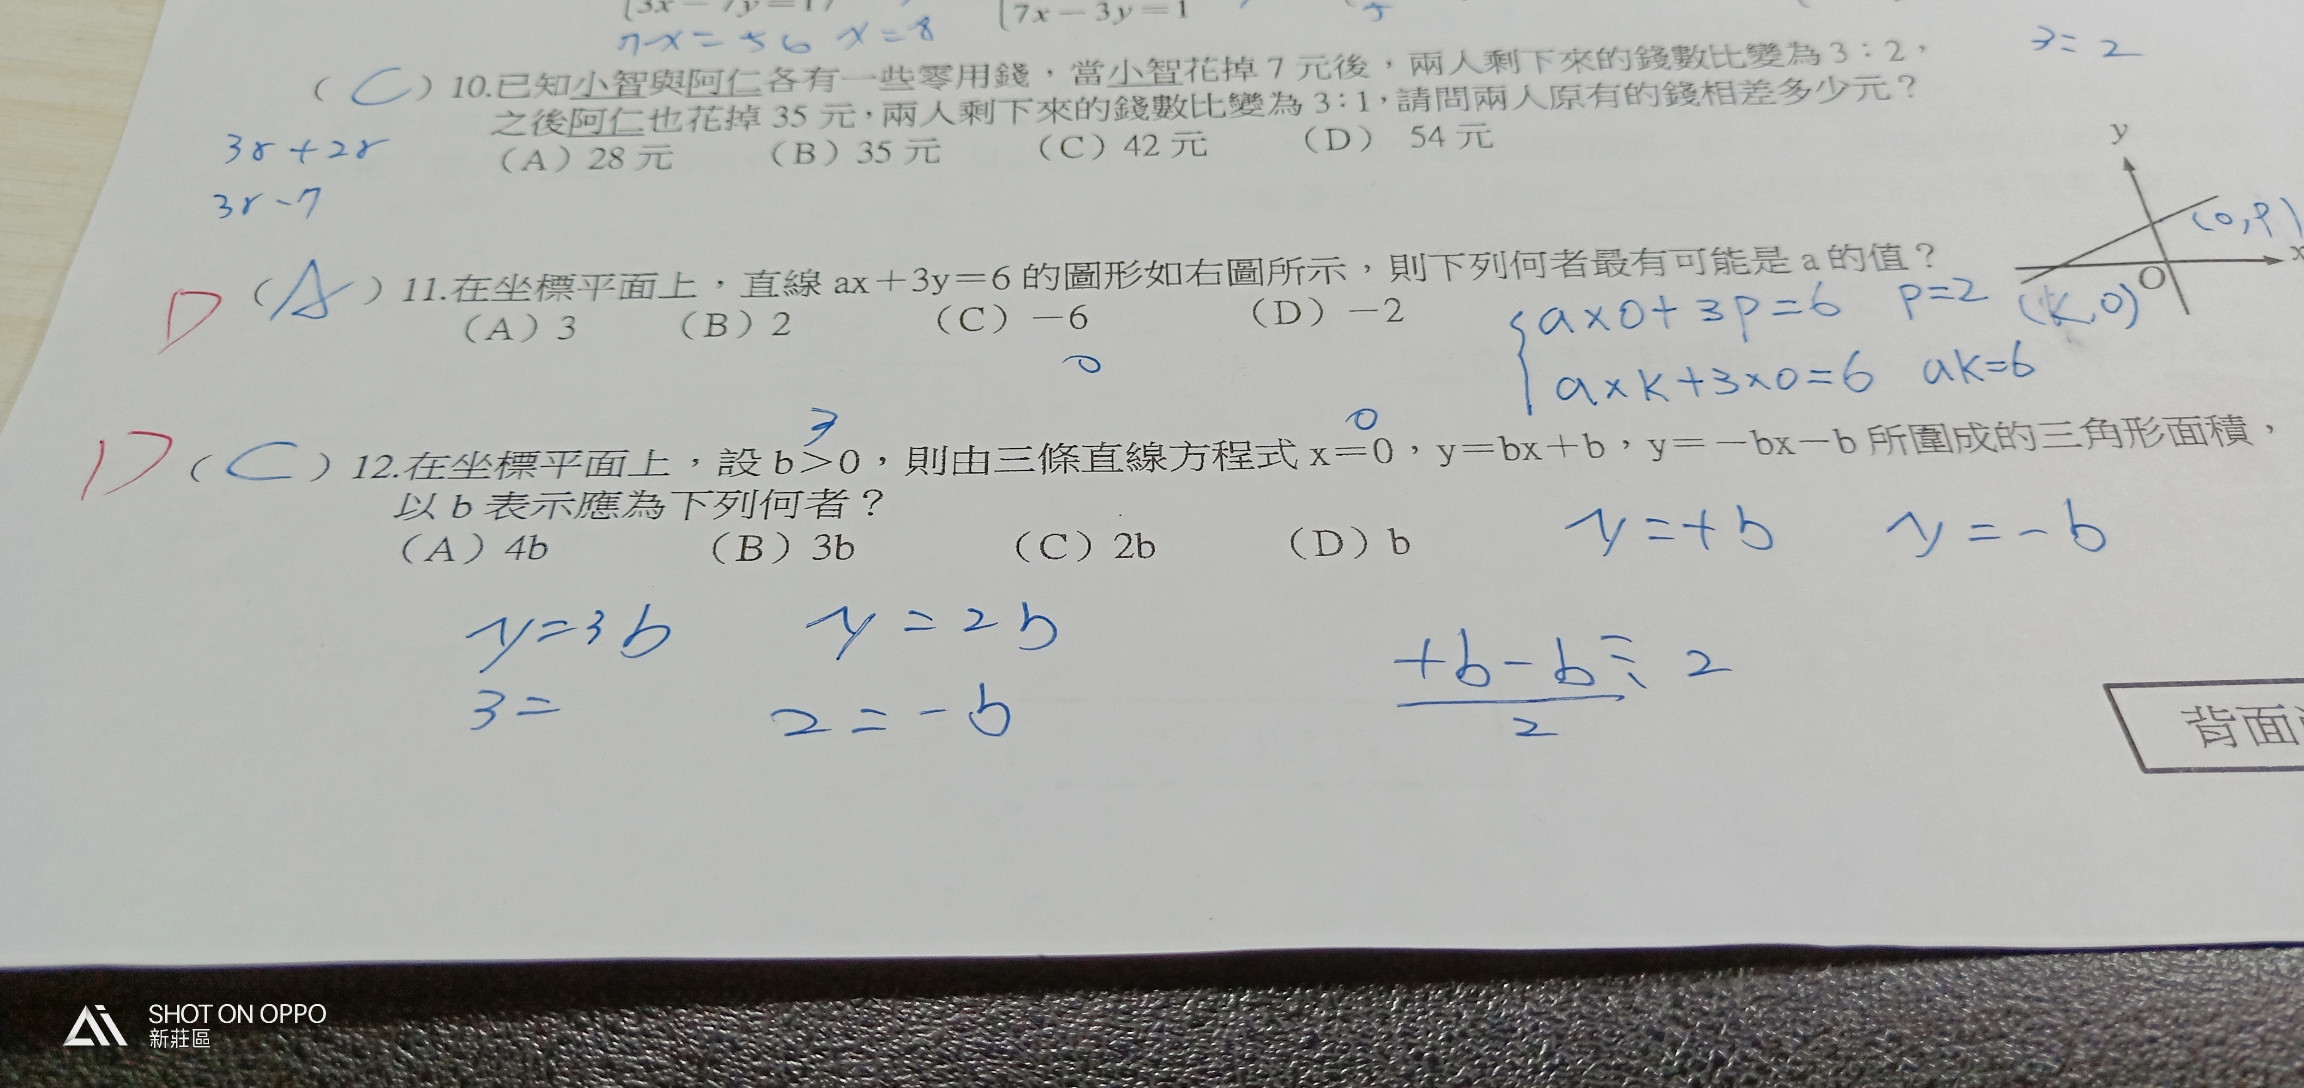 7x－3y＝1
7x = 56 x = 8
3 = 2
( C ) 10.已知小智與阿仁各有一些零用錢，當小智花掉 7 元後，兩人剩下來的錢數比變為 3：2，
之後阿仁也花掉 35 元，兩人剩下來的錢數比變為 3：1，請問兩人原有的錢相差多少元？
(A) 28 元 (B) 35 元 (C) 42 元 (D) 54 元
3r + 2r
3r - 7
y
(0,P)
x
O
(K,0)
D ( A ) 11.在坐標平面上，直線 ax＋3y＝6 的圖形如右圖所示，則下列何者最有可能是 a 的值？
(A) 3 (B) 2 (C) －6 (D) －2
a×0+3P=6 P=2
a×K+3×0=6 aK=6
0
3
0
D ( C ) 12.在坐標平面上，設 b＞0，則由三條直線方程式 x＝0，y＝bx＋b，y＝－bx－b 所圍成的三角形面積，
以 b 表示應為下列何者？
(A) 4b (B) 3b (C) 2b (D) b
y=+b y=-b
y=3b y=2b
3= 2=-b
+b-b 2
2
背面
SHOT ON OPPO
新莊區